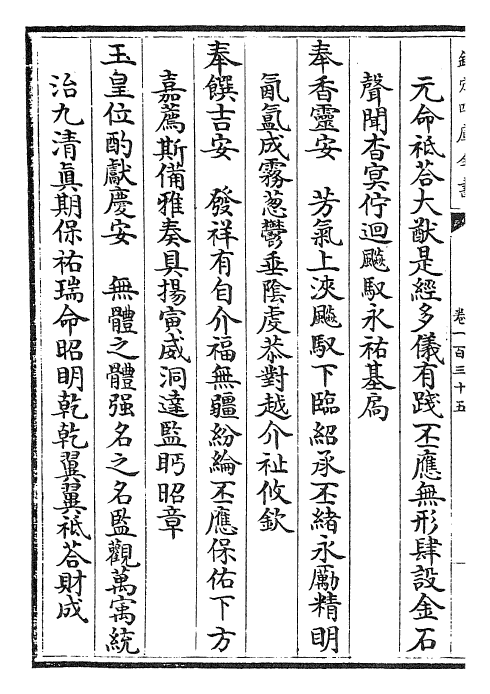 欽定四庫全書
卷一百三十五
元命祗荅大猷是經多儀有踐丕應無形肆設金石
聲聞杳冥佇迴飈馭永祐基扃
奉香靈安　芳氣上浹飈馭下臨紹承丕緒永勵精明
氤氳成霧葱鬱垂陰虔恭對越介祉攸欽
奉饌吉安　發祥有自介福無疆紛綸丕應保佑下方
嘉薦斯備雅奏具揚寅威洞達監眄昭章
玉皇位酌獻慶安　無體之體强名之名監觀萬寓統
治九清眞期保祐瑞命昭明乾乾翼翼祗荅財成